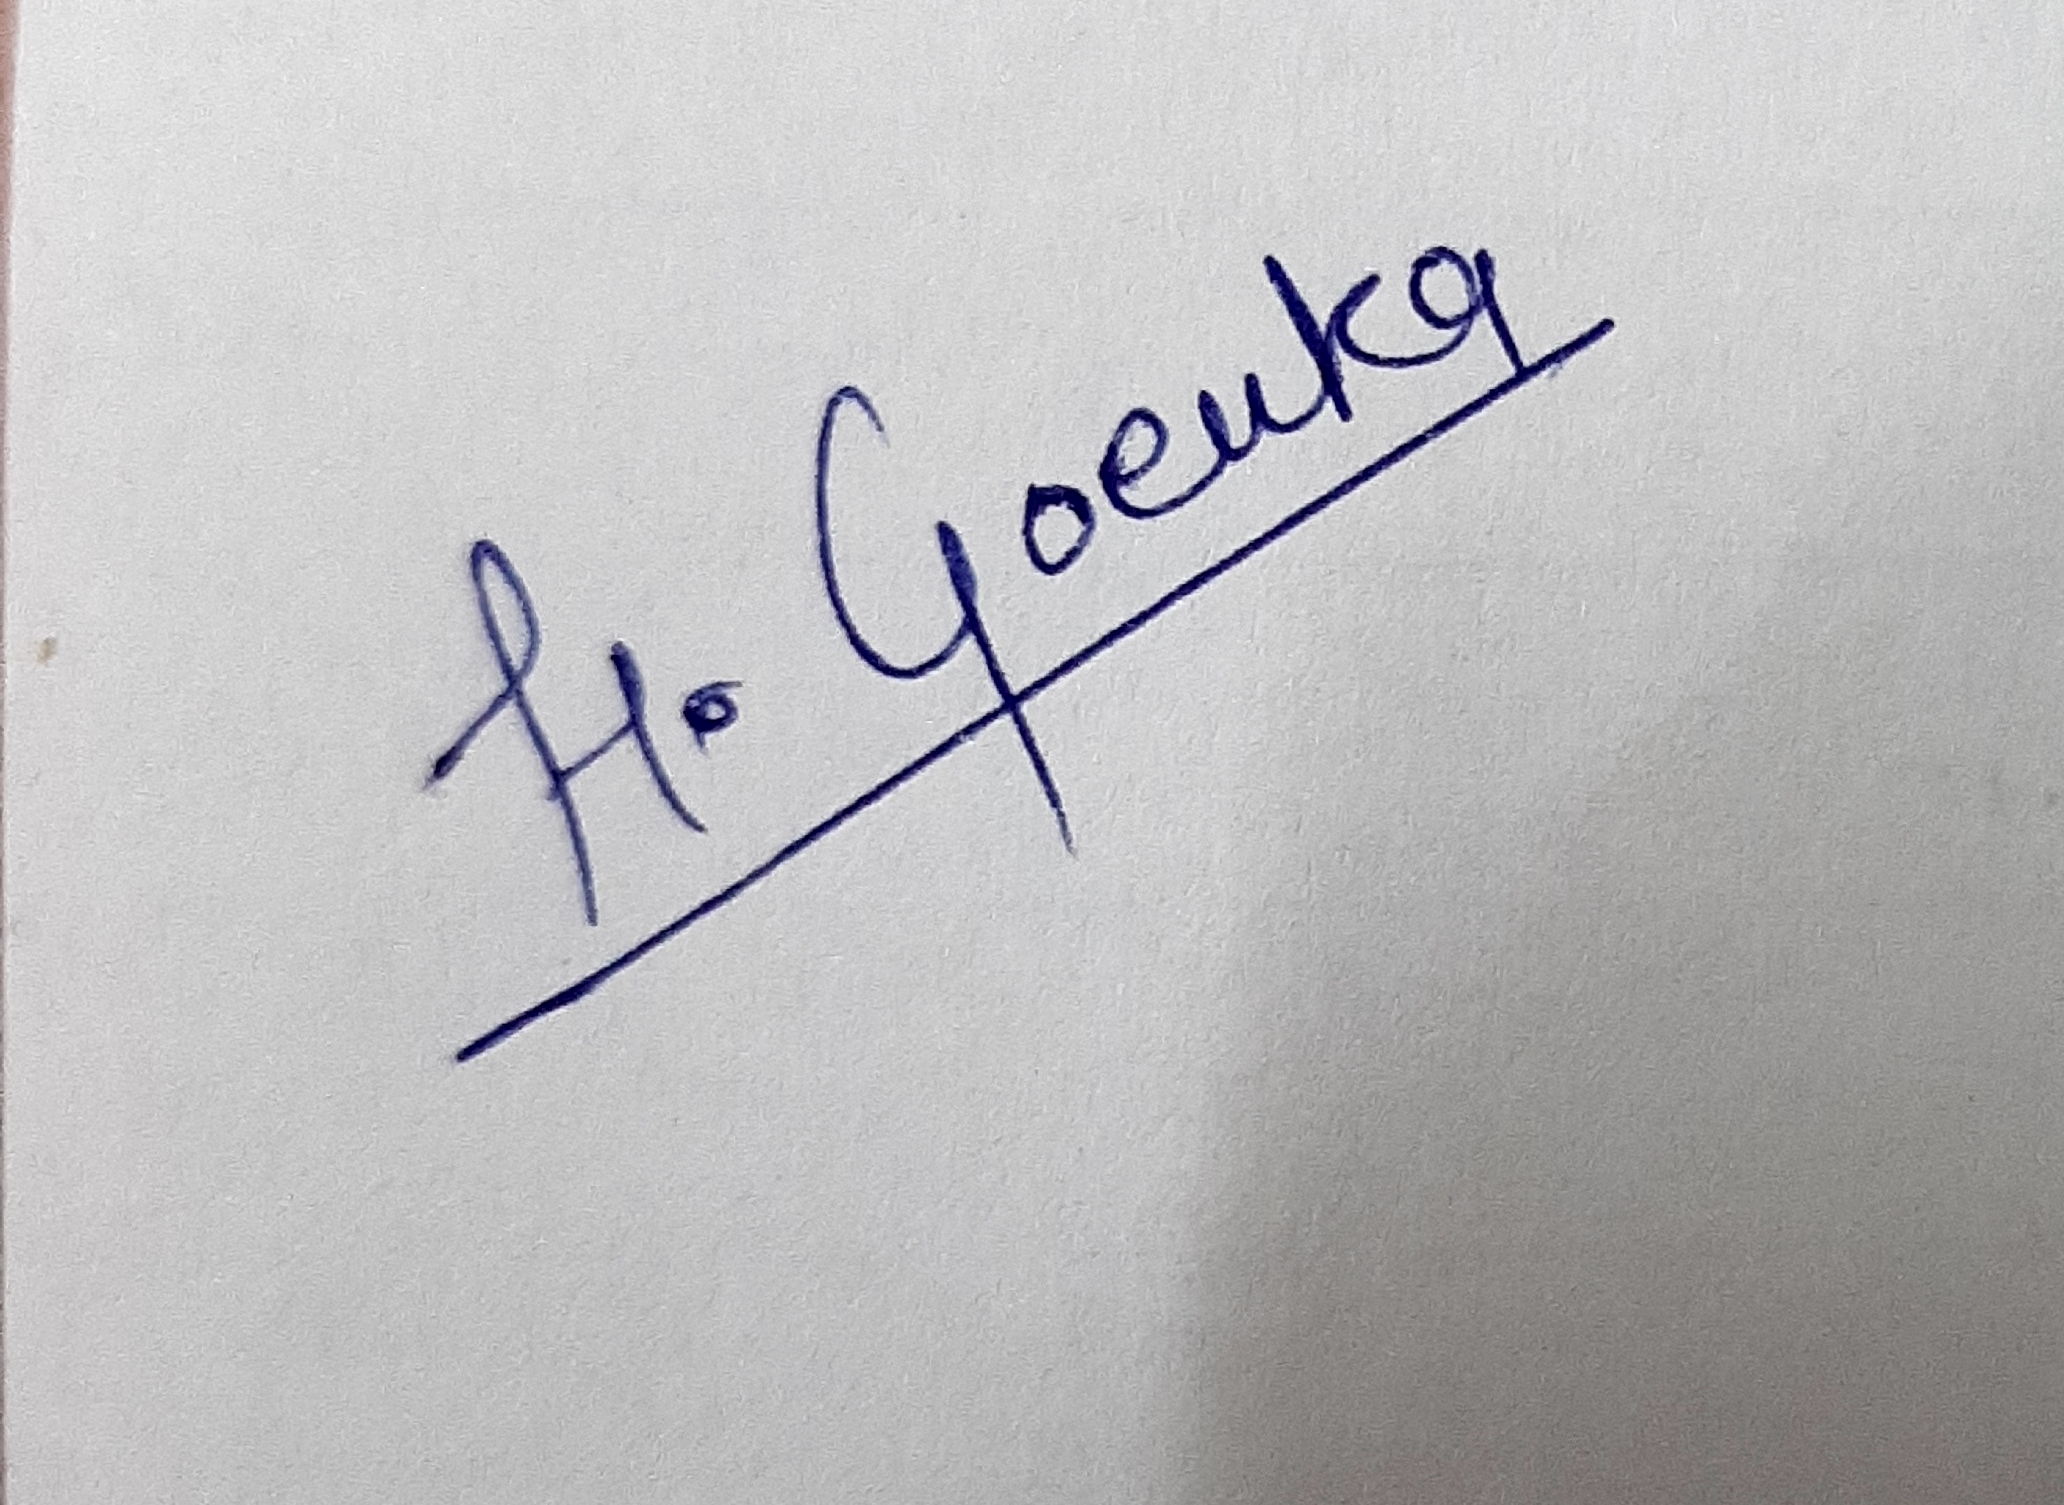 H. Goenka